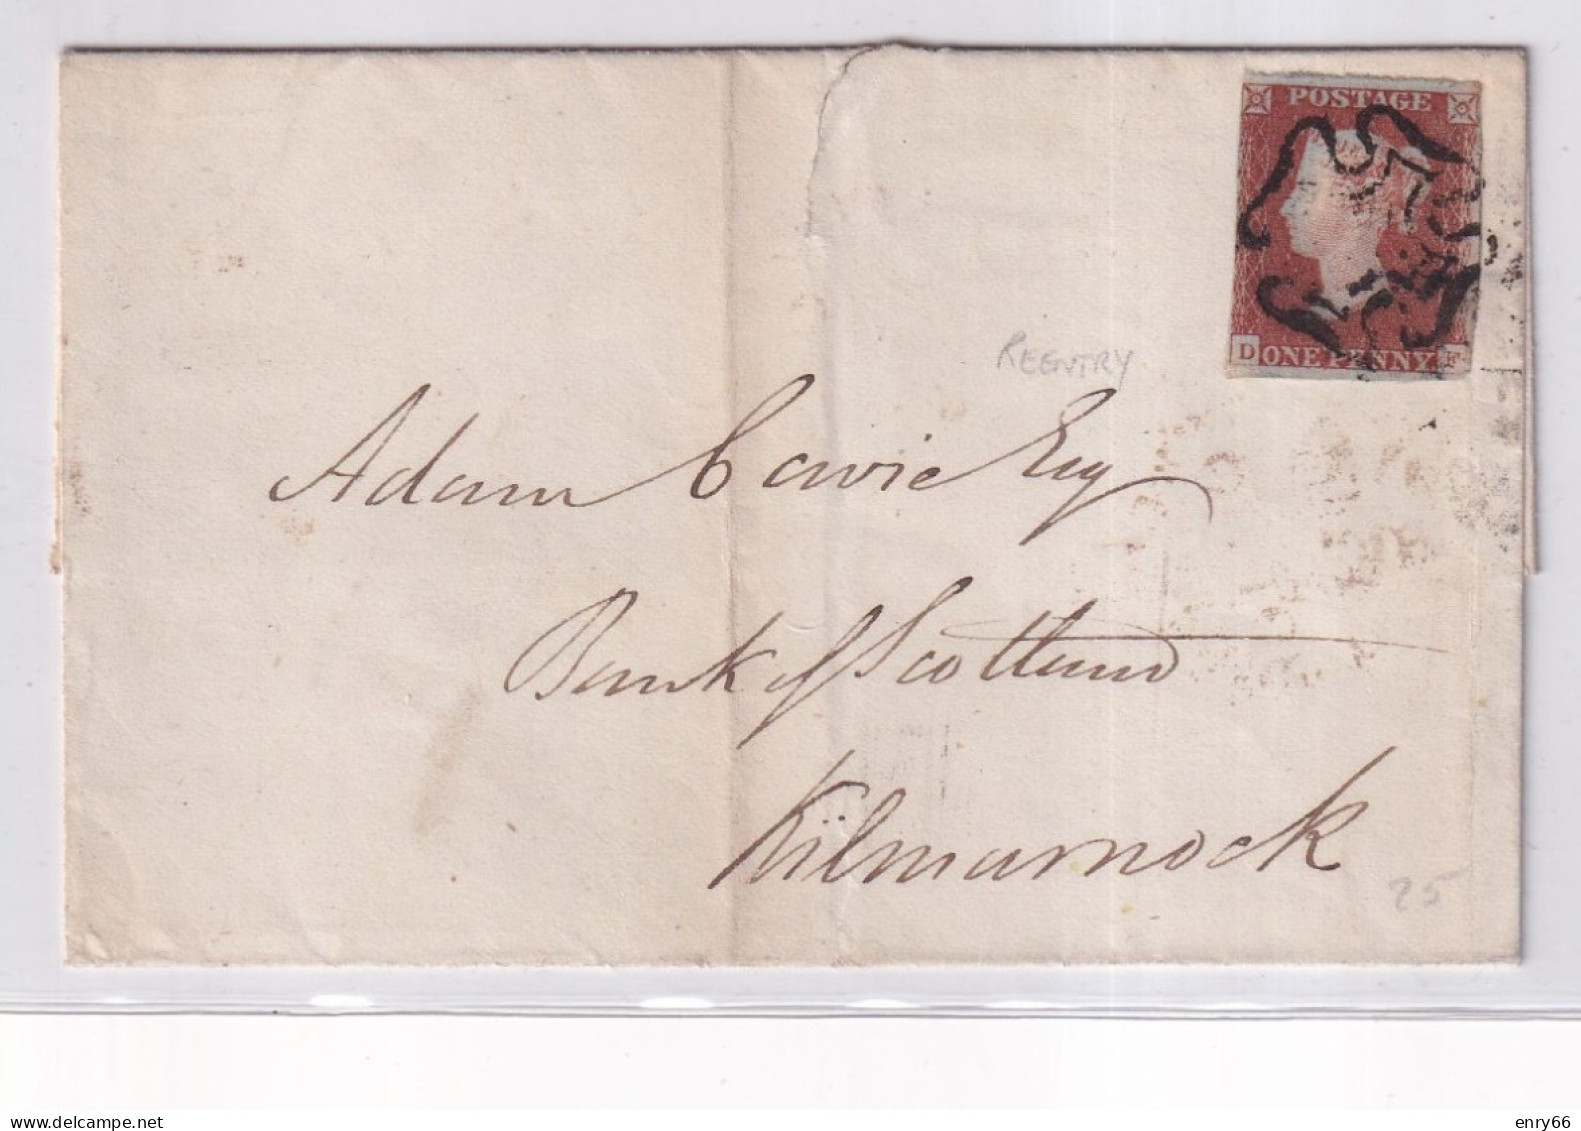 POSTAGE
D ONE PENNY F
REENTRY
Adam Cowie Esq
Bank of Scotland
Kilmarnock
25
delcampe.net
enry66